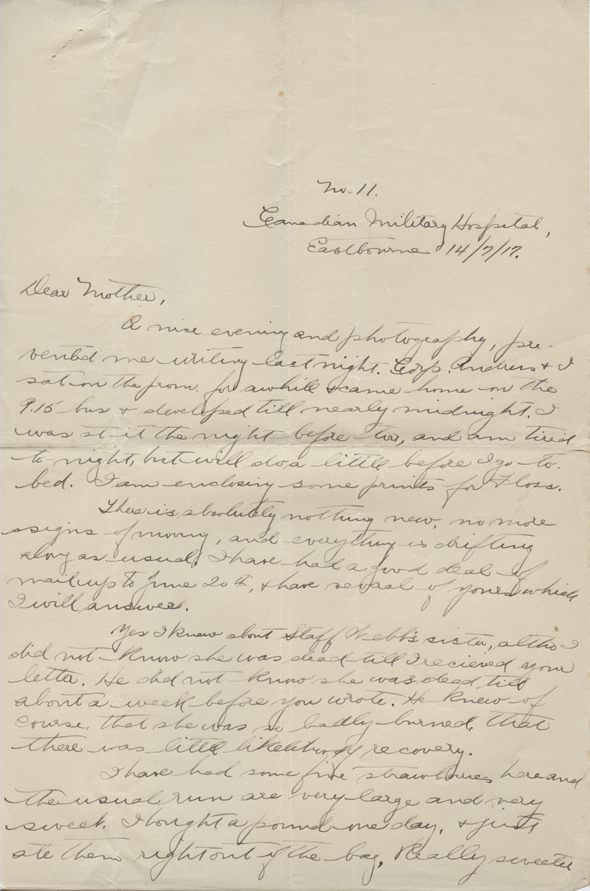 No. 11.
Canadian Military Hospital,
Eastbourne 14/7/17.
Dear Mother,
A nice evening and photography, pre-
vented me writing last night. Corp. Andrews & I
sat on the prom. for awhile & came home on the
9.15 bus & developed till nearly midnight. I
was at it the night before too, and am tired
to night, but will do a little before I go to
bed. I am enclosing some prints for Floss.
There is absolutely nothing new, no more
signs of moving, and everything is drifting
along as usual. I have had a good deal of
mail up to June 20th, & have several of yours which
I will answer.
Yes I knew about Staff Webb's sister, altho I
did not know she was dead till I recieved your
letter. He did not know she was dead till
about a week before you wrote. He knew of
course, that she was so badly burned, that
there was little likelihood of recovery.
I have had some fine strawberries here and
the usual run are very large and very
sweet. I bought a pound one day, & just
ate them right out of the bag, Really sweeter